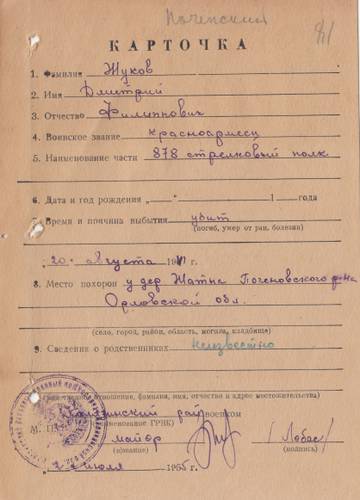 Почепский
К А Р Т О Ч К А
1. Фамилия Жуков
2. Имя Дмитрий
3. Отчество Филиппович
4. Воинское звание красноармеец
5. Наименование части 878 стрелковый полк
6. Дата и год рождения „ “ 1 года
7. Время и причина выбытия убит
(погиб, умер от ран, болезни)
„20“ августа 1941 г.
8. Место похорон у дер Житня Почеповского р-на
Орловской обл.
(село, город, район, область, могила, кладбище)
9. Сведения о родственниках неизвестно
отношение, фамилия, имя, отчество и адрес местожительства)
райвоенком
(наименование ГРВК)
М. П.
майор /Лобас/
(звание) (подпись)
июля 1955 г.